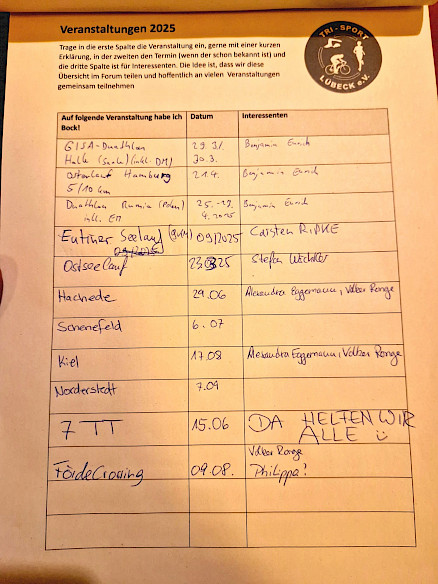 Veranstaltungen 2025
Trage in die erste Spalte die Veranstaltung ein, gerne mit einer kurzen
Erklärung, in der zweiten den Termin (wenn der schon bekannt ist) und
die dritte Spalte ist für Interessenten. Die Idee ist, dass wir diese
Übersicht im Forum teilen und hoffentlich an vielen Veranstaltungen
gemeinsam teilnehmen
TRI-SPORT
LÜBECK e.V.
Auf folgende Veranstaltung habe ich Bock! Datum Interessenten
GISA-Duathlon 29.3/. Benjamin
Halle (Saale) (inkl. DM) 30.3.
Osterlauf Hamburg 21.4. Benjamin
5/10 km
Duathlon Rumia (Polen) 25.-27. Benjamin
inkl. EM 4.2025
Eutiner Seelauf 09/2025 Carsten RIPKE
09/2025
Ostseelauf Stefan
Hachede 29.06 Alexandra Eggemann, Volker Ronge
Schenefeld 6.07
Kiel 17.08 Alexandra Eggemann, Volker Ronge
Norderstedt 7.09
7 TT 15.06 DA HELFEN WIR
ALLE
Volker Ronge
FördeCrossing 09.08. Philippa!